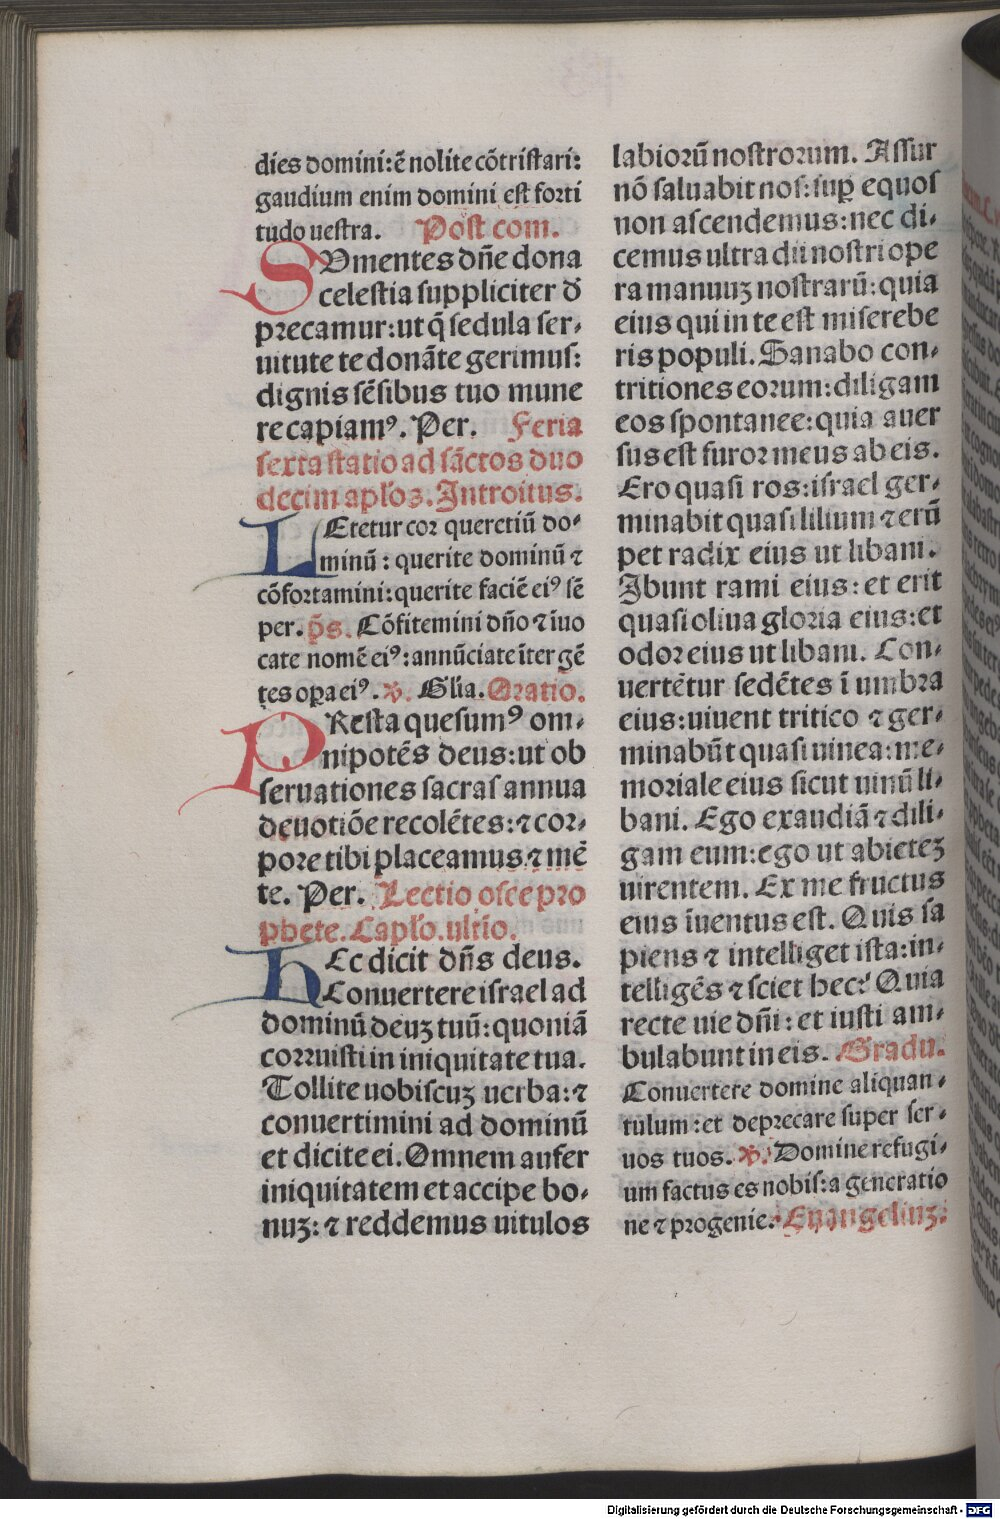 dies domini: ē nolite cōtristari:
gaudium enim domini est forti
tudo uestra. Post com.
SUmentes dn̄e dona
celestia suppliciter d̄
precamur: ut q̄ sedula ser-
uitute te donāte gerimus:
dignis sēsibus tuo mune
re capiamꝰ. Per. Feria
sexta statio ad sāctos duo
decim apl̓oꝝ. Introitus.
LEtetur cor querētiū do-
minū: querite dominū ⁊
cōfortamini: querite faciē eiꝰ sē
per. p̄s. Cōfitemini dn̄o ⁊ iuo
cate nomē eiꝰ: annūciate īter gē
tes oꝑa eiꝰ. ꟟. Gl̓ia. Oratio.
PResta quesumꝰ om-
nipotēs deus: ut ob
seruationes sacras annua
deuotiōe recolētes: ⁊ cor-
pore tibi placeamus ⁊ mē
te. Per. Lectio osee pro
phete. Capl̓o. ultio.
HEc dicit dn̄s deus.
Conuertere israel ad
dominū deuꝫ tuū: quoniā
corruisti in iniquitate tua.
Tollite uobiscuꝫ uerba: ⁊
conuertimini ad dominū
et dicite ei. Omnem aufer
iniquitatem et accipe bo-
nuꝫ: ⁊ reddemus uitulos
labiorū nostrorum. Assur
nō saluabit nos: suꝑ equos
non ascendemus: nec di-
cemus ultra dii nostri ope
ra manuuꝫ nostrarū: quia
eius qui in te est miserebe
ris populi. Sanabo con-
tritiones eorum: diligam
eos spontanee: quia auer
sus est furor meus ab eis.
Ero quasi ros: israel ger-
minabit quasi lilium ⁊ erū
pet radix eius ut libani.
Ibunt rami eius: et erit
quasi oliua gloria eius: et
odor eius ut libani. Con-
uertētur sedētes ī umbra
eius: uiuent tritico ⁊ ger-
minabūt quasi uinea: me-
moriale eius sicut uinū li-
bani. Ego exaudiā ⁊ dili-
gam eum: ego ut abieteꝫ
uirentem. Ex me fructus
eius īuentus est. Quis sa
piens ⁊ intelliget ista: in-
telligēs ⁊ sciet hec? Quia
recte uie dn̄i: et iusti am-
bulabunt in eis. Gradu.
Conuertere domine aliquan-
tulum: et deprecare super ser-
uos tuos. ꟟. Domine refugi-
um factus es nobis: a generatio
ne ⁊ progenie. Euangeliuꝫ.
Digitalisierung gefördert durch die Deutsche Forschungsgemeinschaft - DFG